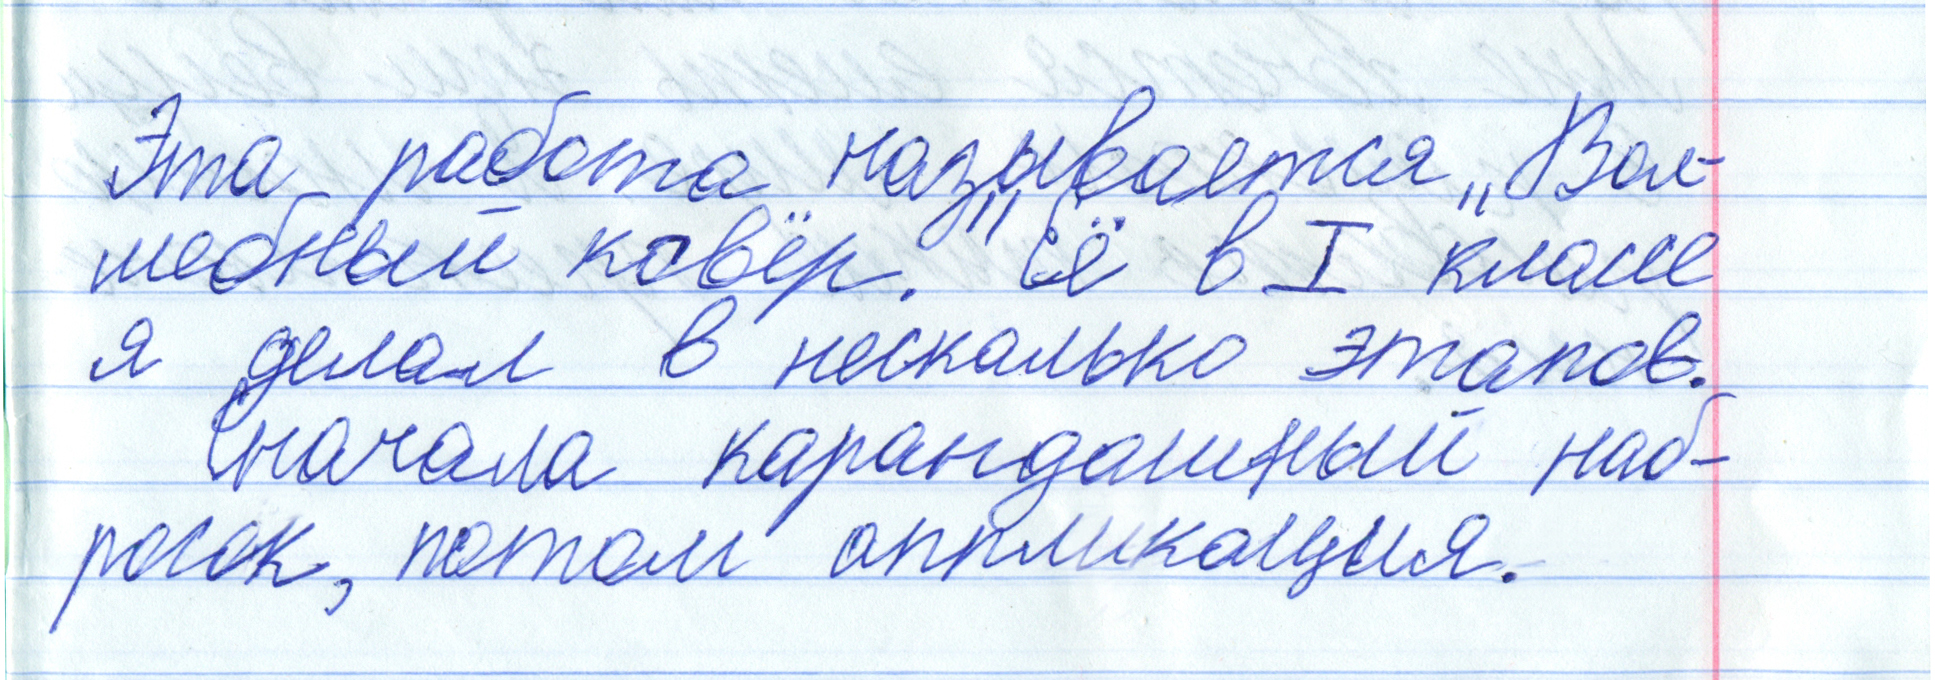 Эта работа называется „Вол-
шебный ковёр." Её в I классе
я делал в несколько этапов.
Сначала карандашный наб-
росок, потом аппликация.